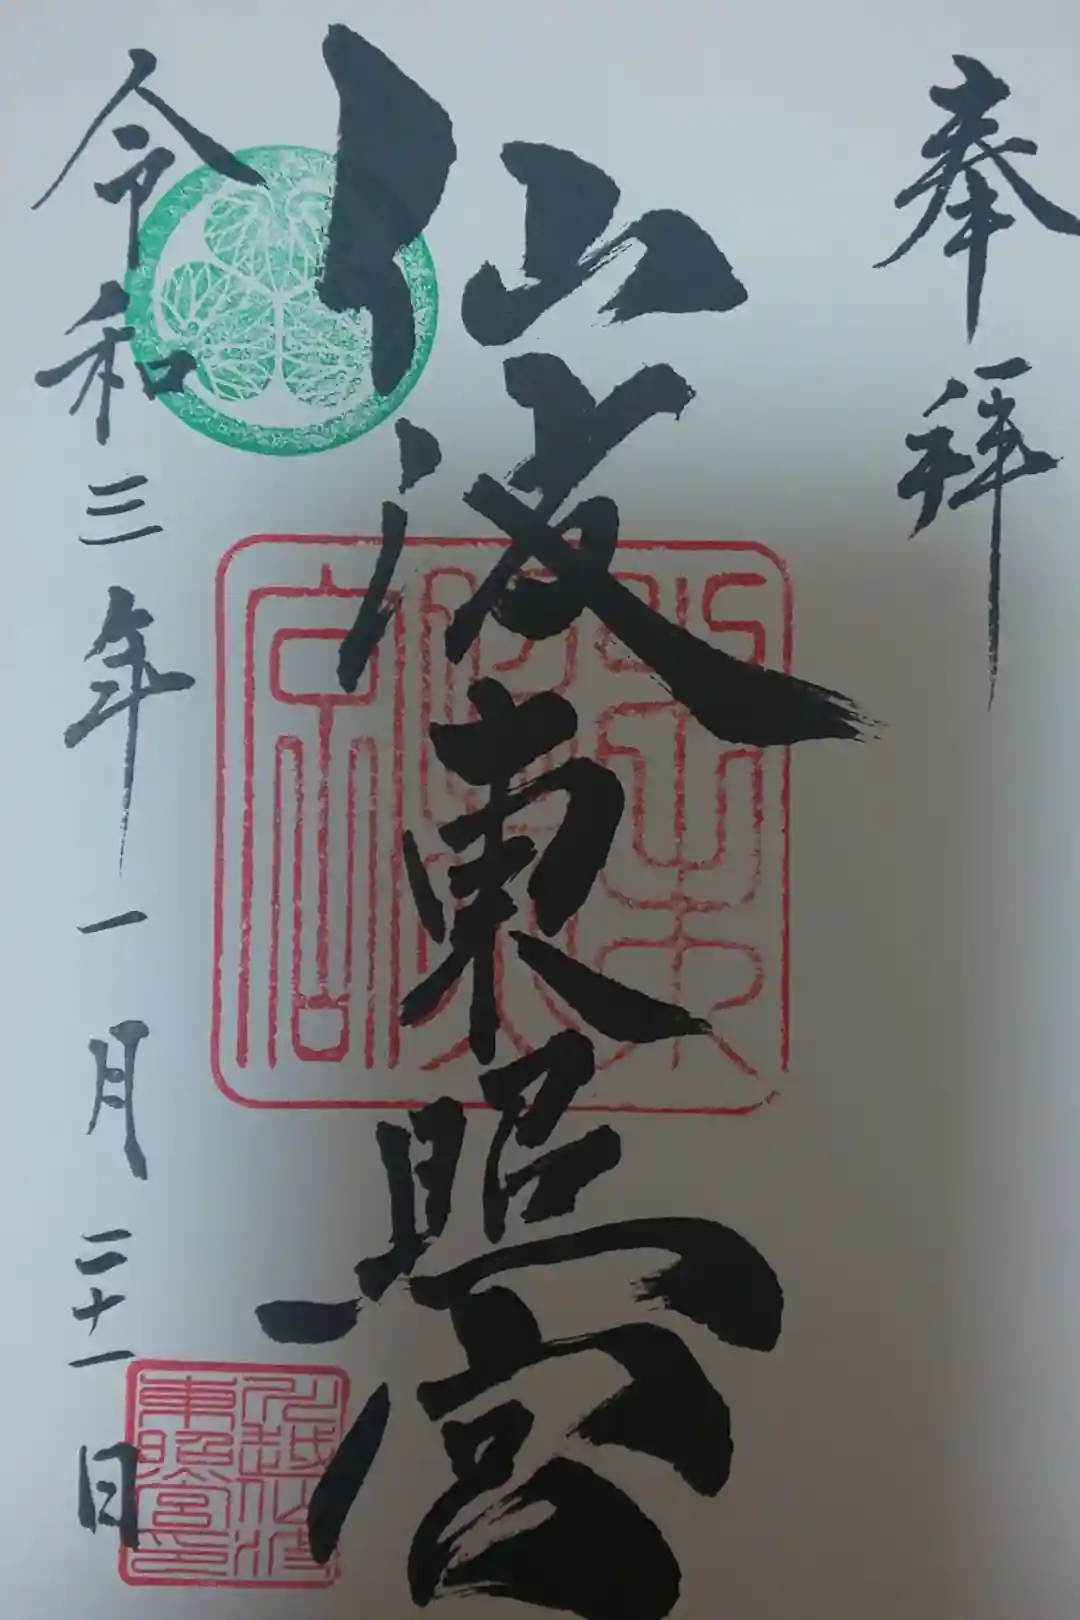 奉拝
仙波東照宮
令和三年一月二十一日
川越仙波
東照宮印